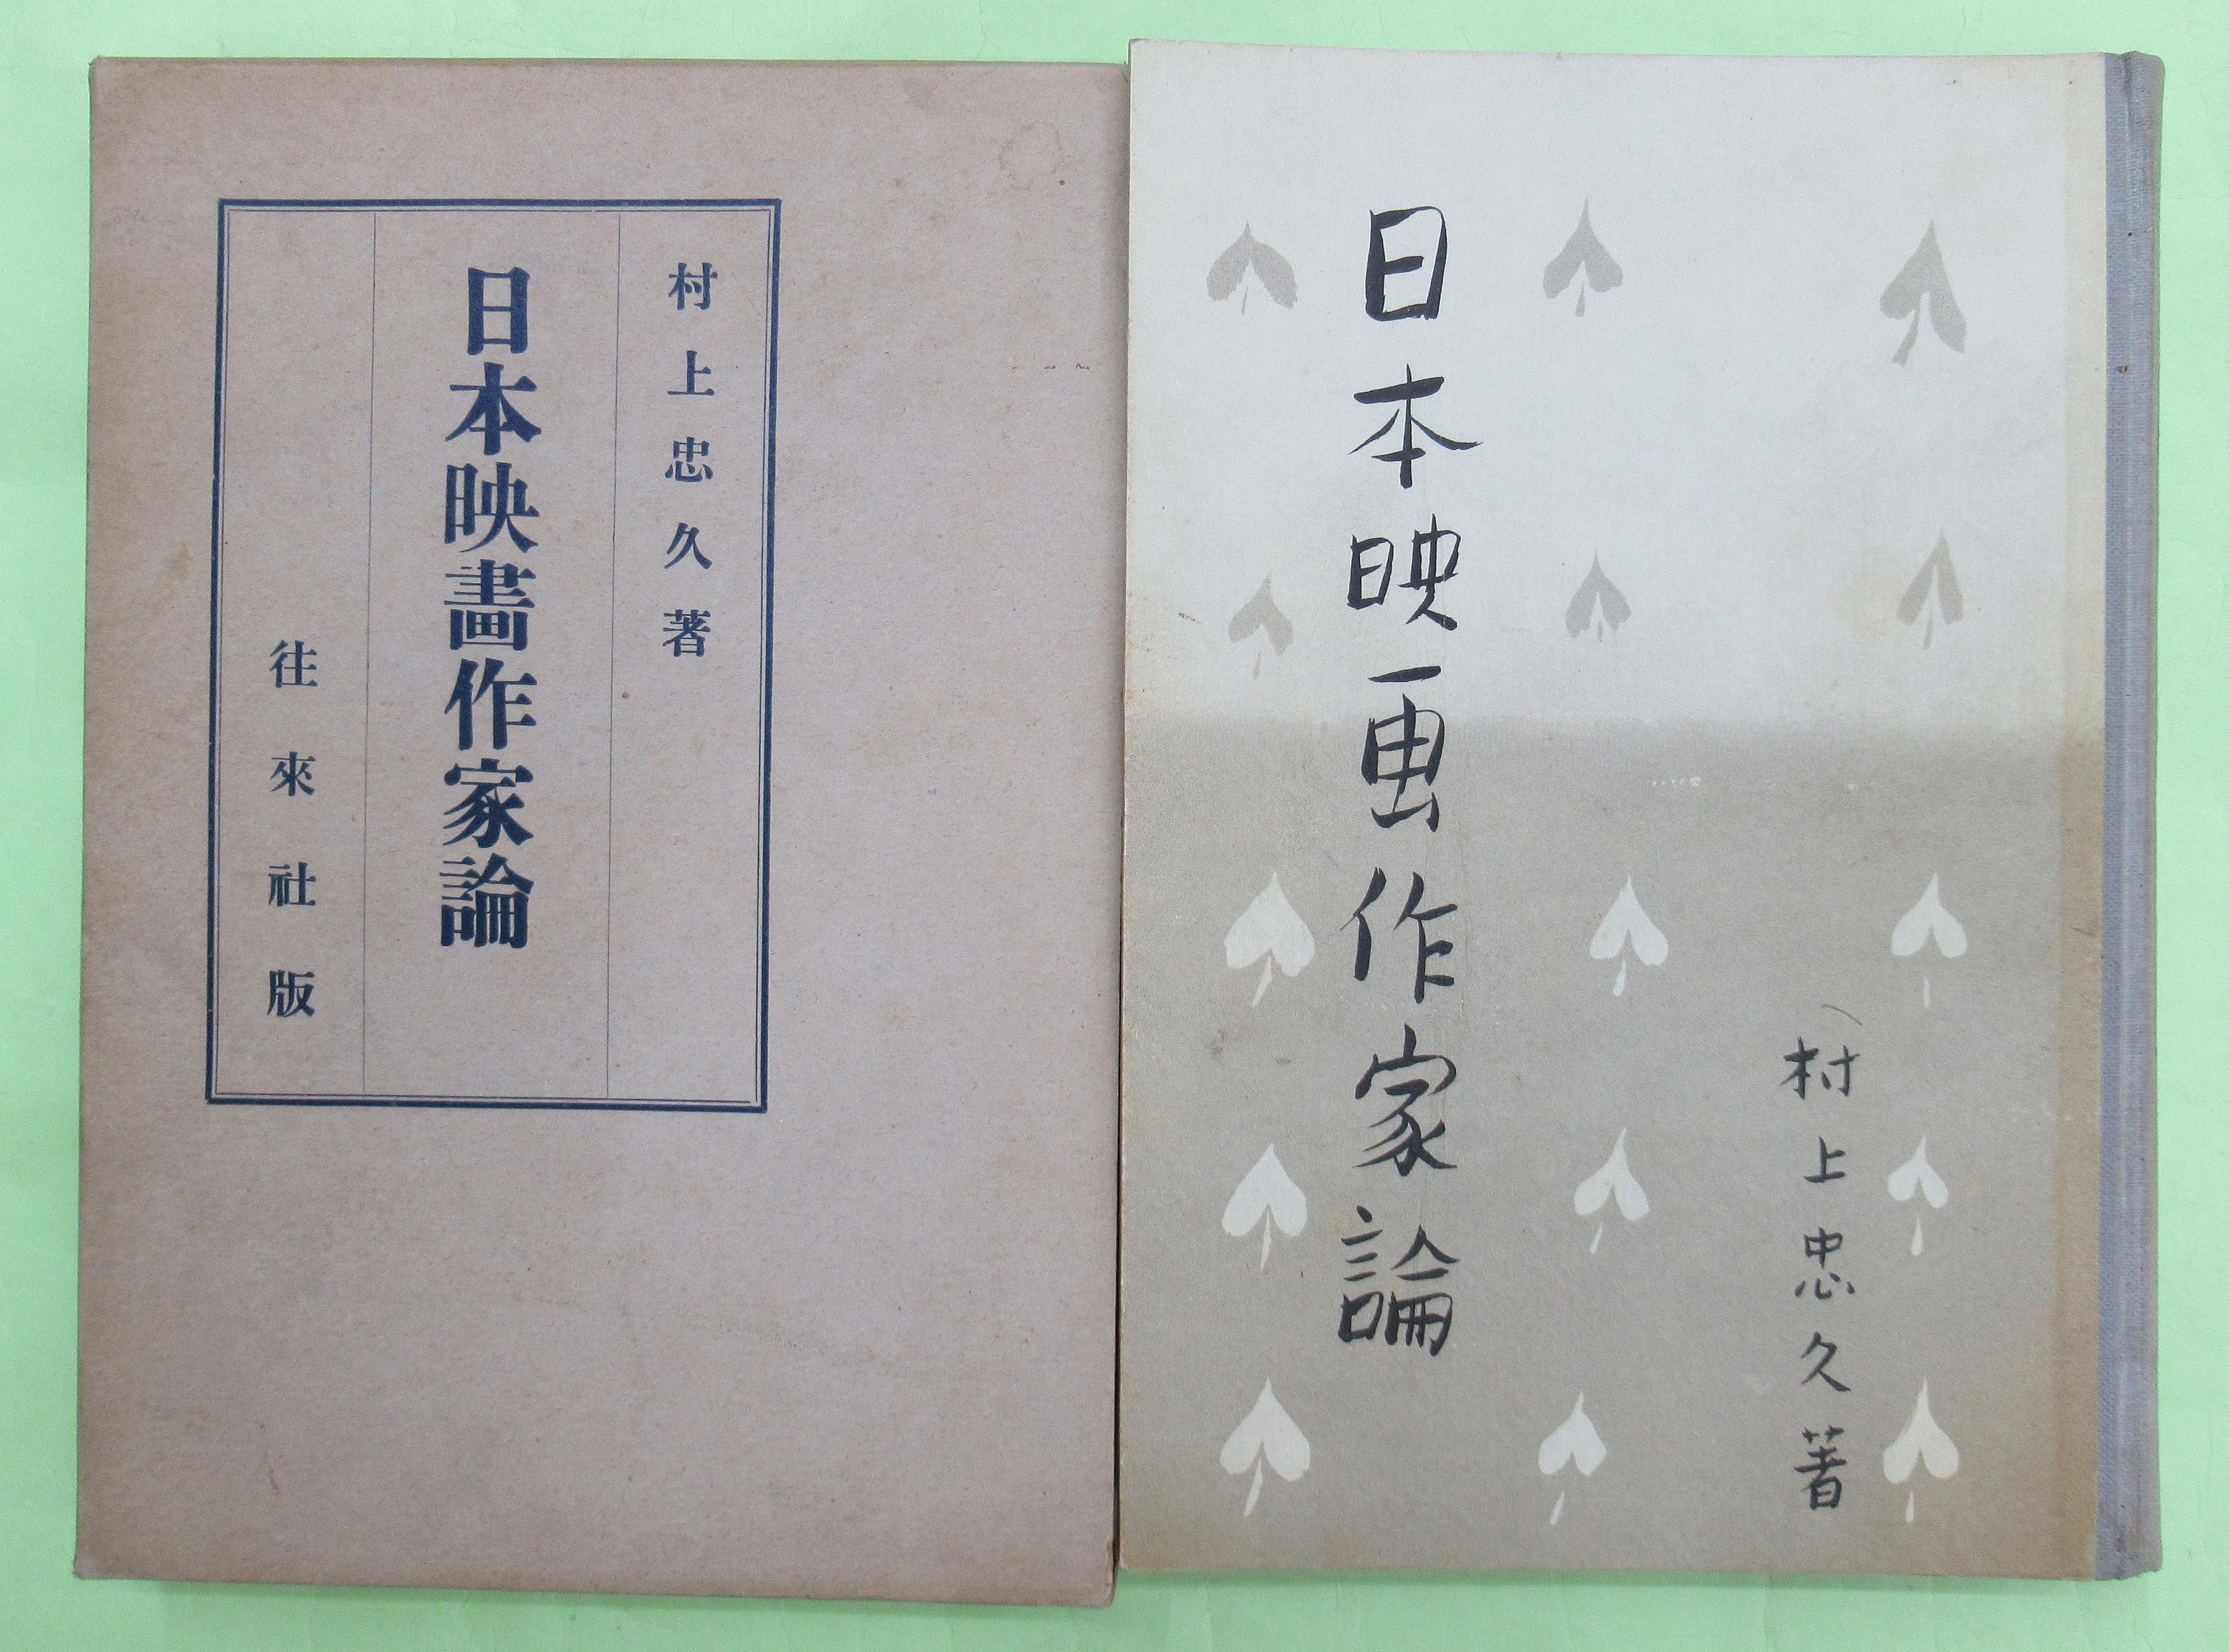 村上忠久著
日本映畫作家論
往來社版
日本映画作家論
村上忠久著